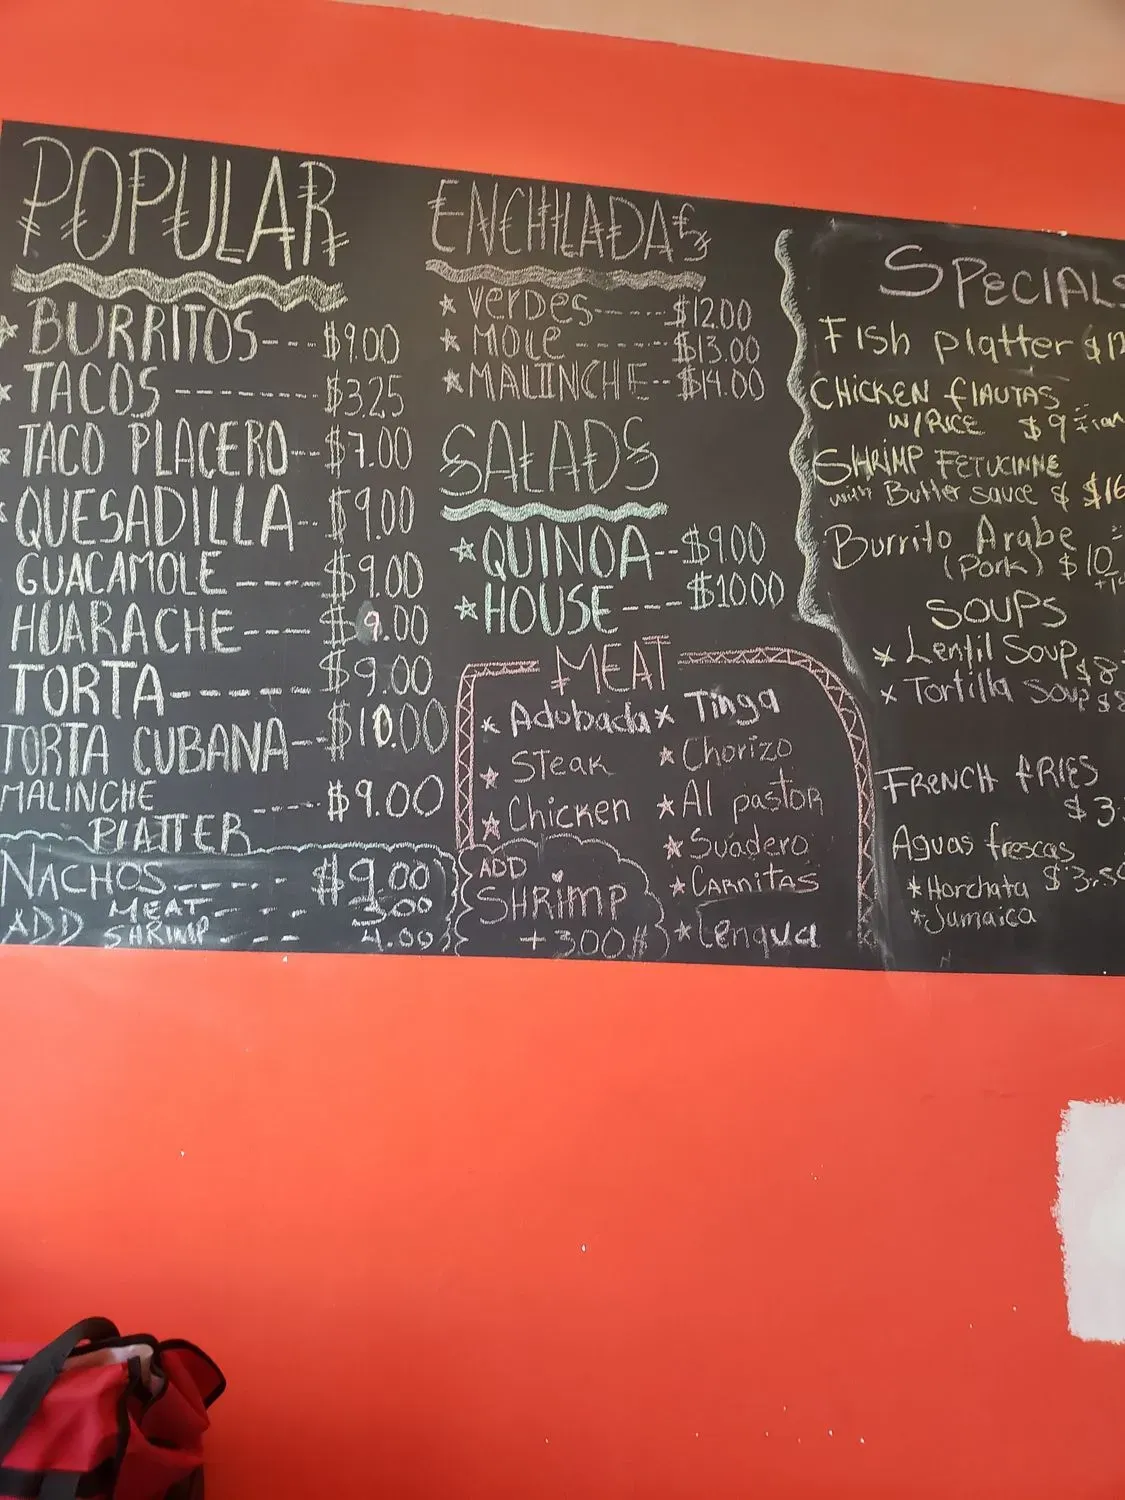 POPULAR
★ BURRITOS--- $9.00
★ TACOS -------- $3.25
★ TACO PLACERO-- $7.00
★ QUESADILLA-- $9.00
GUACAMOLE ---- $9.00
HUARACHE ---- $9.00
TORTA------ $9.00
TORTA CUBANA-- $10.00
MALINCHE
PLATTER ---- $9.00
NACHOS------ $9.00
ADD MEAT- -- 3.00
ADD SHRIMP- - -- 4.00
ENCHILADAS
★ VerDes----- $12.00
★ MOLE ------- $13.00
★ MALINCHE-- $14.00
SALADS
★ QUINOA-- $9.00
★ HOUSE --- $10.00
MEAT
★ Adobada
★ Steak
★ Chicken
★ Tinga
★ Chorizo
★ Al pastor
★ Suadero
★ CARNITAS
★ Lengua
ADD
SHRIMP
+ 3.00 #
SPECIALS
Fish platter
CHICKEN flAUTAS
W/RICE $9
SHRIMP FETUCINNE
with Butter sauce & $16
Burrito Arabe
(Pork) $10
SOUPS
★ Lentil Soup $8
★ Tortilla Soup $8
FRENCH fRIES
Aguas frescas
* Horchata $3.50
* Jamaica